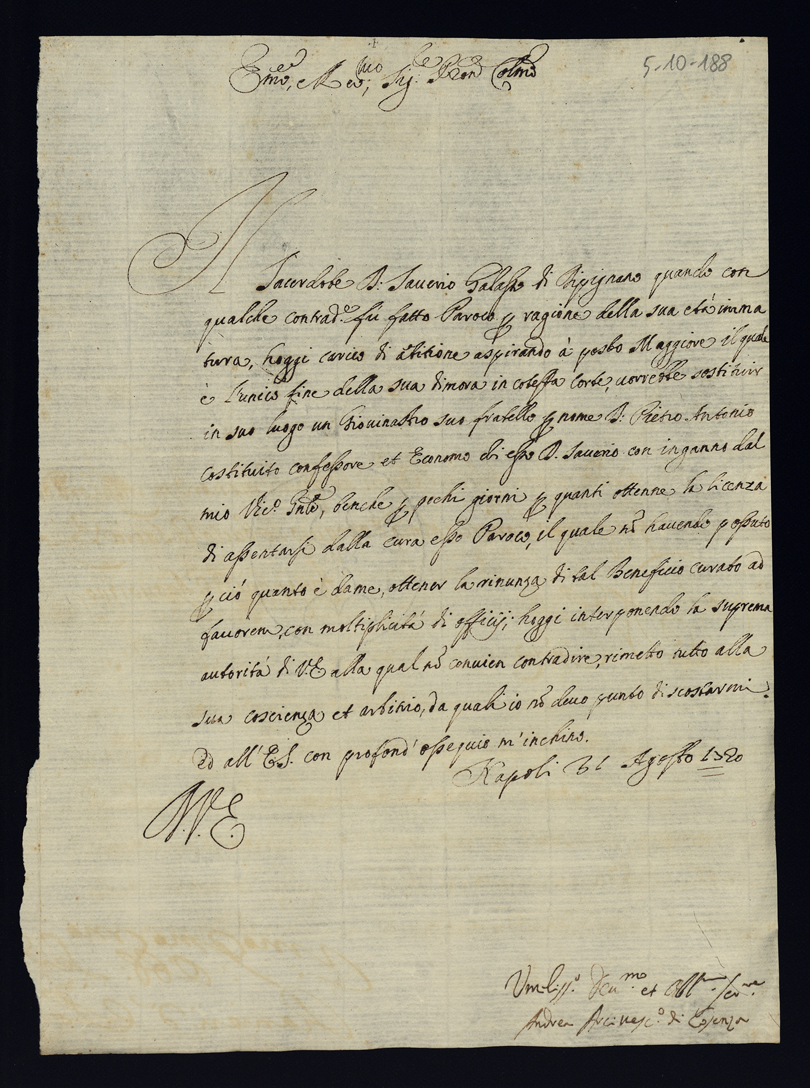 5-10-188
Em.o, e Rev.mo Sig.re Pron Colmo
Il Sacerdote D: Saverio Galasso di Dipignano quando con
qualche contrad.e fu fatto Paroco p ragione della sua età imma
tura, hoggi carico di aspirando à posto Maggiore il quale
è l'unico fine della sua dimora in cotessa Corte, vorrebbe sostituir
in suo luogo un Giovinastro suo fratello p nome D: Pietro Antonio
costituito confessore et Economo di esso D. Saverio con inganno dal
mio Vic.o Gnle, benche p pochi giorni p quanti ottenne la licenza
di assentarsi dalla cura esso Paroco, il quale nõ havendo possuto
p ciò quanto è dame, ottener la rinunza di tal Beneficio curato ad
favorem, con moltiplicità di officij; hoggi interponendo la suprema
autorità di V.E alla qual nõ convien contradire, rimetto tutto alla
sua coscienza et arbitrio, da quali io nõ devo punto discostarmi.
Ed all'E.S. con profond' ossequio m'inchino.
Napoli 31 Agosto 1720
D.V.E
Umiliss.o Dev.mo et Obl.mo Ser.re
Andrea Arcivesc.o di Cosenza